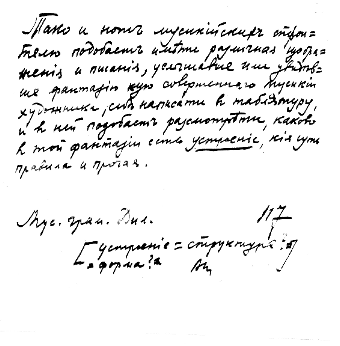 Тако и нотъ мусикiйскихъ строи=
телю подобаетъ имѣти различная изобра=
женiя и писанiя, услышавше или увидѣв=
ше фантазiю кую совершеннаго мусикiи
художника, себѣ написати в таблятуру,
и в ней подобаетъ разсмотрѣти, каково
в той фантазiи есть устроенiе, кiя суть
правила и прочая.
Мус. грам. Дил. 117
[устроенiе = структура?
= форма?